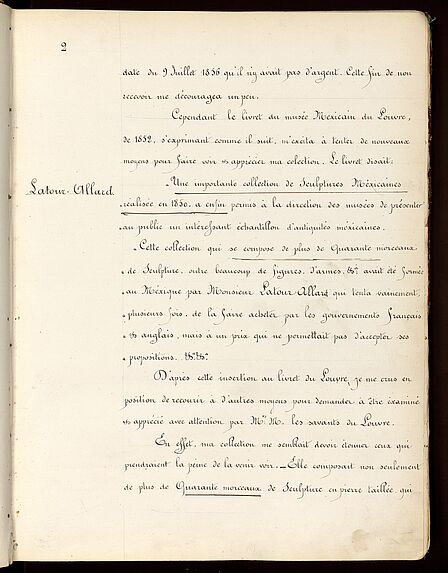 2
date du 9 Juillet 1856 qu'il n'y avait pas d'argent. Cette fin de non
recevoir me découragea un peu.
Cependant le livret du musée Mexicain du Louvre,
de 1852, s'exprimant comme il suit, m'excita à tenter de nouveaux
moyens pour faire voir & apprécier ma colection. Le livret disait:
Latour-Allard.
"Une importante collection de Sculptures Méxicaines
réalisée en 1850, a enfin permis à la direction des musées de présenter
au public un intéressant échantillon d'antiquités méxicaines.
"Cette collection qui se compose de plus de Quarante morceaux
"de Sculpture, outre beaucoup de figures, d'armes, &ª avait été formée
"au Méxique par Monsieur Latour-Allard qui tenta vainement,
"plusieurs fois, de la faire acheter par les gouvernements français
"& anglais, mais à un prix qui ne permettait pas d'accepter ses
"propositions. &ª &ª
D'après cette insertion au livret du Louvre, je me crus en
position de recourir à d'autres moyens pour demander à être examiné
& apprécié avec attention par Mrs M. les savants du Louvre.
En effet, ma collection me semblait devoir étonner ceux qui
prendraient la peine de la venir voir. — Elle composait non seulement
de plus de Quarante morceaux de Sculpture en pierre taillée, qui